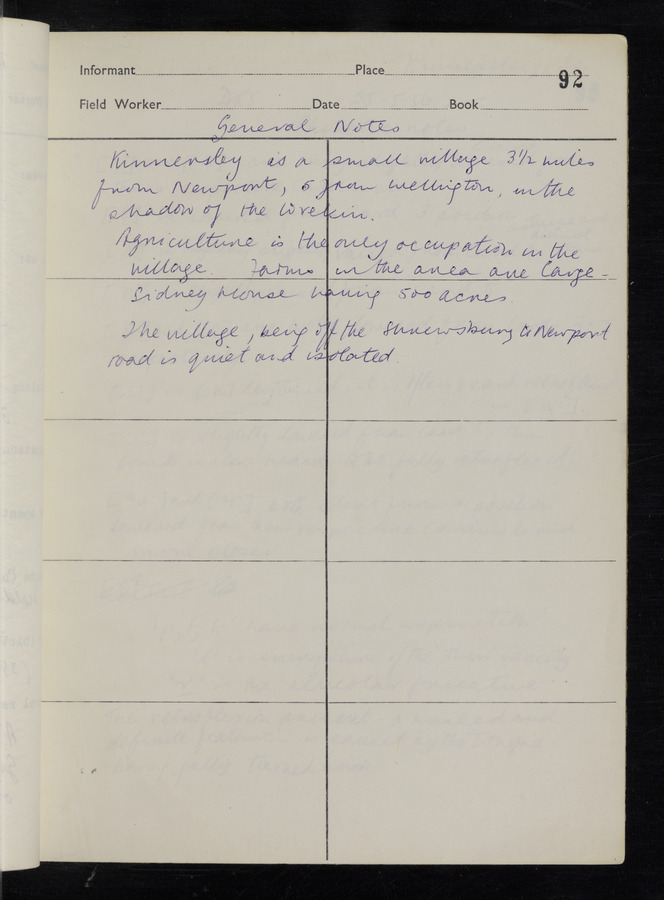 Informant Place 92
Field Worker Date Book
General Notes
Kinnersley is a small village 3½ miles
from Newport, 5 from Wellington, in the
shadow of the Wrekin.
Agriculture is the only occupation in the
village. Farms in the area are large -
Sidney House having 500 acres
The village, being off the Shrewsbury to Newport
road is quiet and isolated.